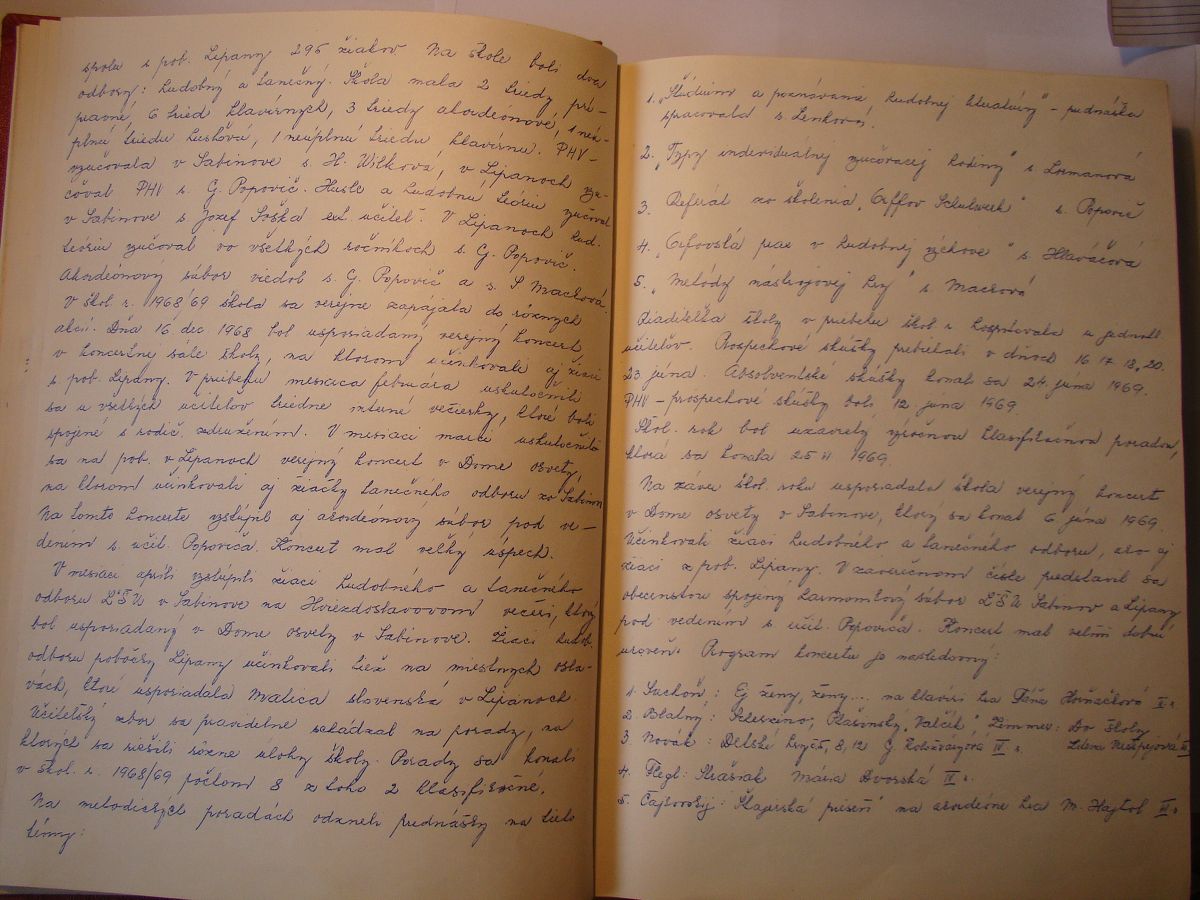 spolu s pob. Lipany 295 žiakov Na škole boli dva
odbory: hudobný a tanečný. Škola mala 2 triedy prí-
pravné, 6 tried klavírnych, 3 triedy akordeónové, 1 neú-
plnú triedu husľovú, 1 neúplnú triedu klavírnu. PHV-
vyučovala v Sabinove s. H. Wilková, v Lipanoch vyu-
čoval PHV s. G. Popovič. Husle a hudobnú teóriu vyučoval
v Sabinove s Jozef Soška ext. učiteľ. V Lipanoch hud.
teóriu vyučoval vo všetkých ročníkoch s. G. Popovič.
Akordeónový súbor viedol s. G. Popovič a s. S Macková.
V škol r. 1968/69 škola sa verejne zapájala do rôznych
akcií. Dňa 16 dec 1968 bol usporiadaný verejný koncert
v koncertnej sále školy, na ktorom účinkovali aj žiaci
s pob. Lipany. V priebehu mesiaca februára uskutočnili
sa u všetkých učiteľov triedne interné večierky, ktoré boli
spojené s rodič. združením. V mesiaci marci uskutočnil
sa na pob. v Lipanoch verejný koncert v Dome osvety,
na ktorom účinkovali aj žiačky tanečného odboru zo Sabinova
Na tomto koncerte vystúpil aj akordeónový súbor pod ve-
dením s. učit. Popoviča. Koncert mal veľký úspech.
V mesiaci apríli vystúpili žiaci hudobného a tanečného
odboru ĽŠU v Sabinove na Hviezdoslavovom večeri, ktorý
bol usporiadaný v Dome osvety v Sabinove. Žiaci hudob.
odboru pobočky Lipany účinkovali tiež na miestnych osla-
vách, ktoré usporiadala Matica slovenská v Lipanoch.
Učiteľský zbor sa pravidelne schádzal na porady, na
ktorých sa riešili rôzne úlohy školy. Porady sa konali
v škol. r. 1968/69 počtom 8 z toho 2 klasifičné.
Na metodických poradách odzneli prednášky na tieto
témy:
1. "Štúdium a poznávanie hudobnej literatúry" - prednášku
spracovala s. Lenková.
2. "Typy individuálnej vyučovacej hodiny" s Lormanová
3. Referát zo školenia "Orffov Schulwerk" s. Popovič
4. "Orfovská prax v hudobnej výchove" s. Hlaváčová
5. "Metódy nástrojovej hry" s. Macková
Riaditeľka školy v priebehu škol r. hospitovala u jednotl.
učiteľov. Prospechové skúšky prebiehali v dňoch 16 17. 18, 20.
23 júna. Absolventské skúšky konali sa 24. júna 1969.
PHV - prospechové skúšky boli 12. júna 1969.
Škol. rok bol uzavretý výročnou klasifikačnou poradou,
ktorá sa konala 25 VI 1969.
Na záver škol. roku usporiadala škola verejný koncert
v Dome osvety v Sabinove, ktorý sa konal 6 júna 1969.
Účinkovali žiaci hudobného a tanečného odboru, ako aj
žiaci z pob. Lipany. V záverečnom čísle predstavil sa
obecenstvu spojený harmonikový súbor ĽŠU Sabinov a Lipany
pod vedením s učit. Popoviča. Koncert mal veľmi dobrú
úroveň. Program koncertu je nasledovný:
1. Suchoň: Ej ženy, ženy... na klavíri hrá Táňa Horňáčková I r.
2. Blatný: Scherzino, Plašinský "Valčík", Zemmer: Do školy
3 Novák: Detské hry č 5, 8, 12 G IV r.
4. Flegl: Strašiak Mária Dvorská IV r.
5. Čajkovskij: pieseň na akordeóne hrá M. Hajtol III r.